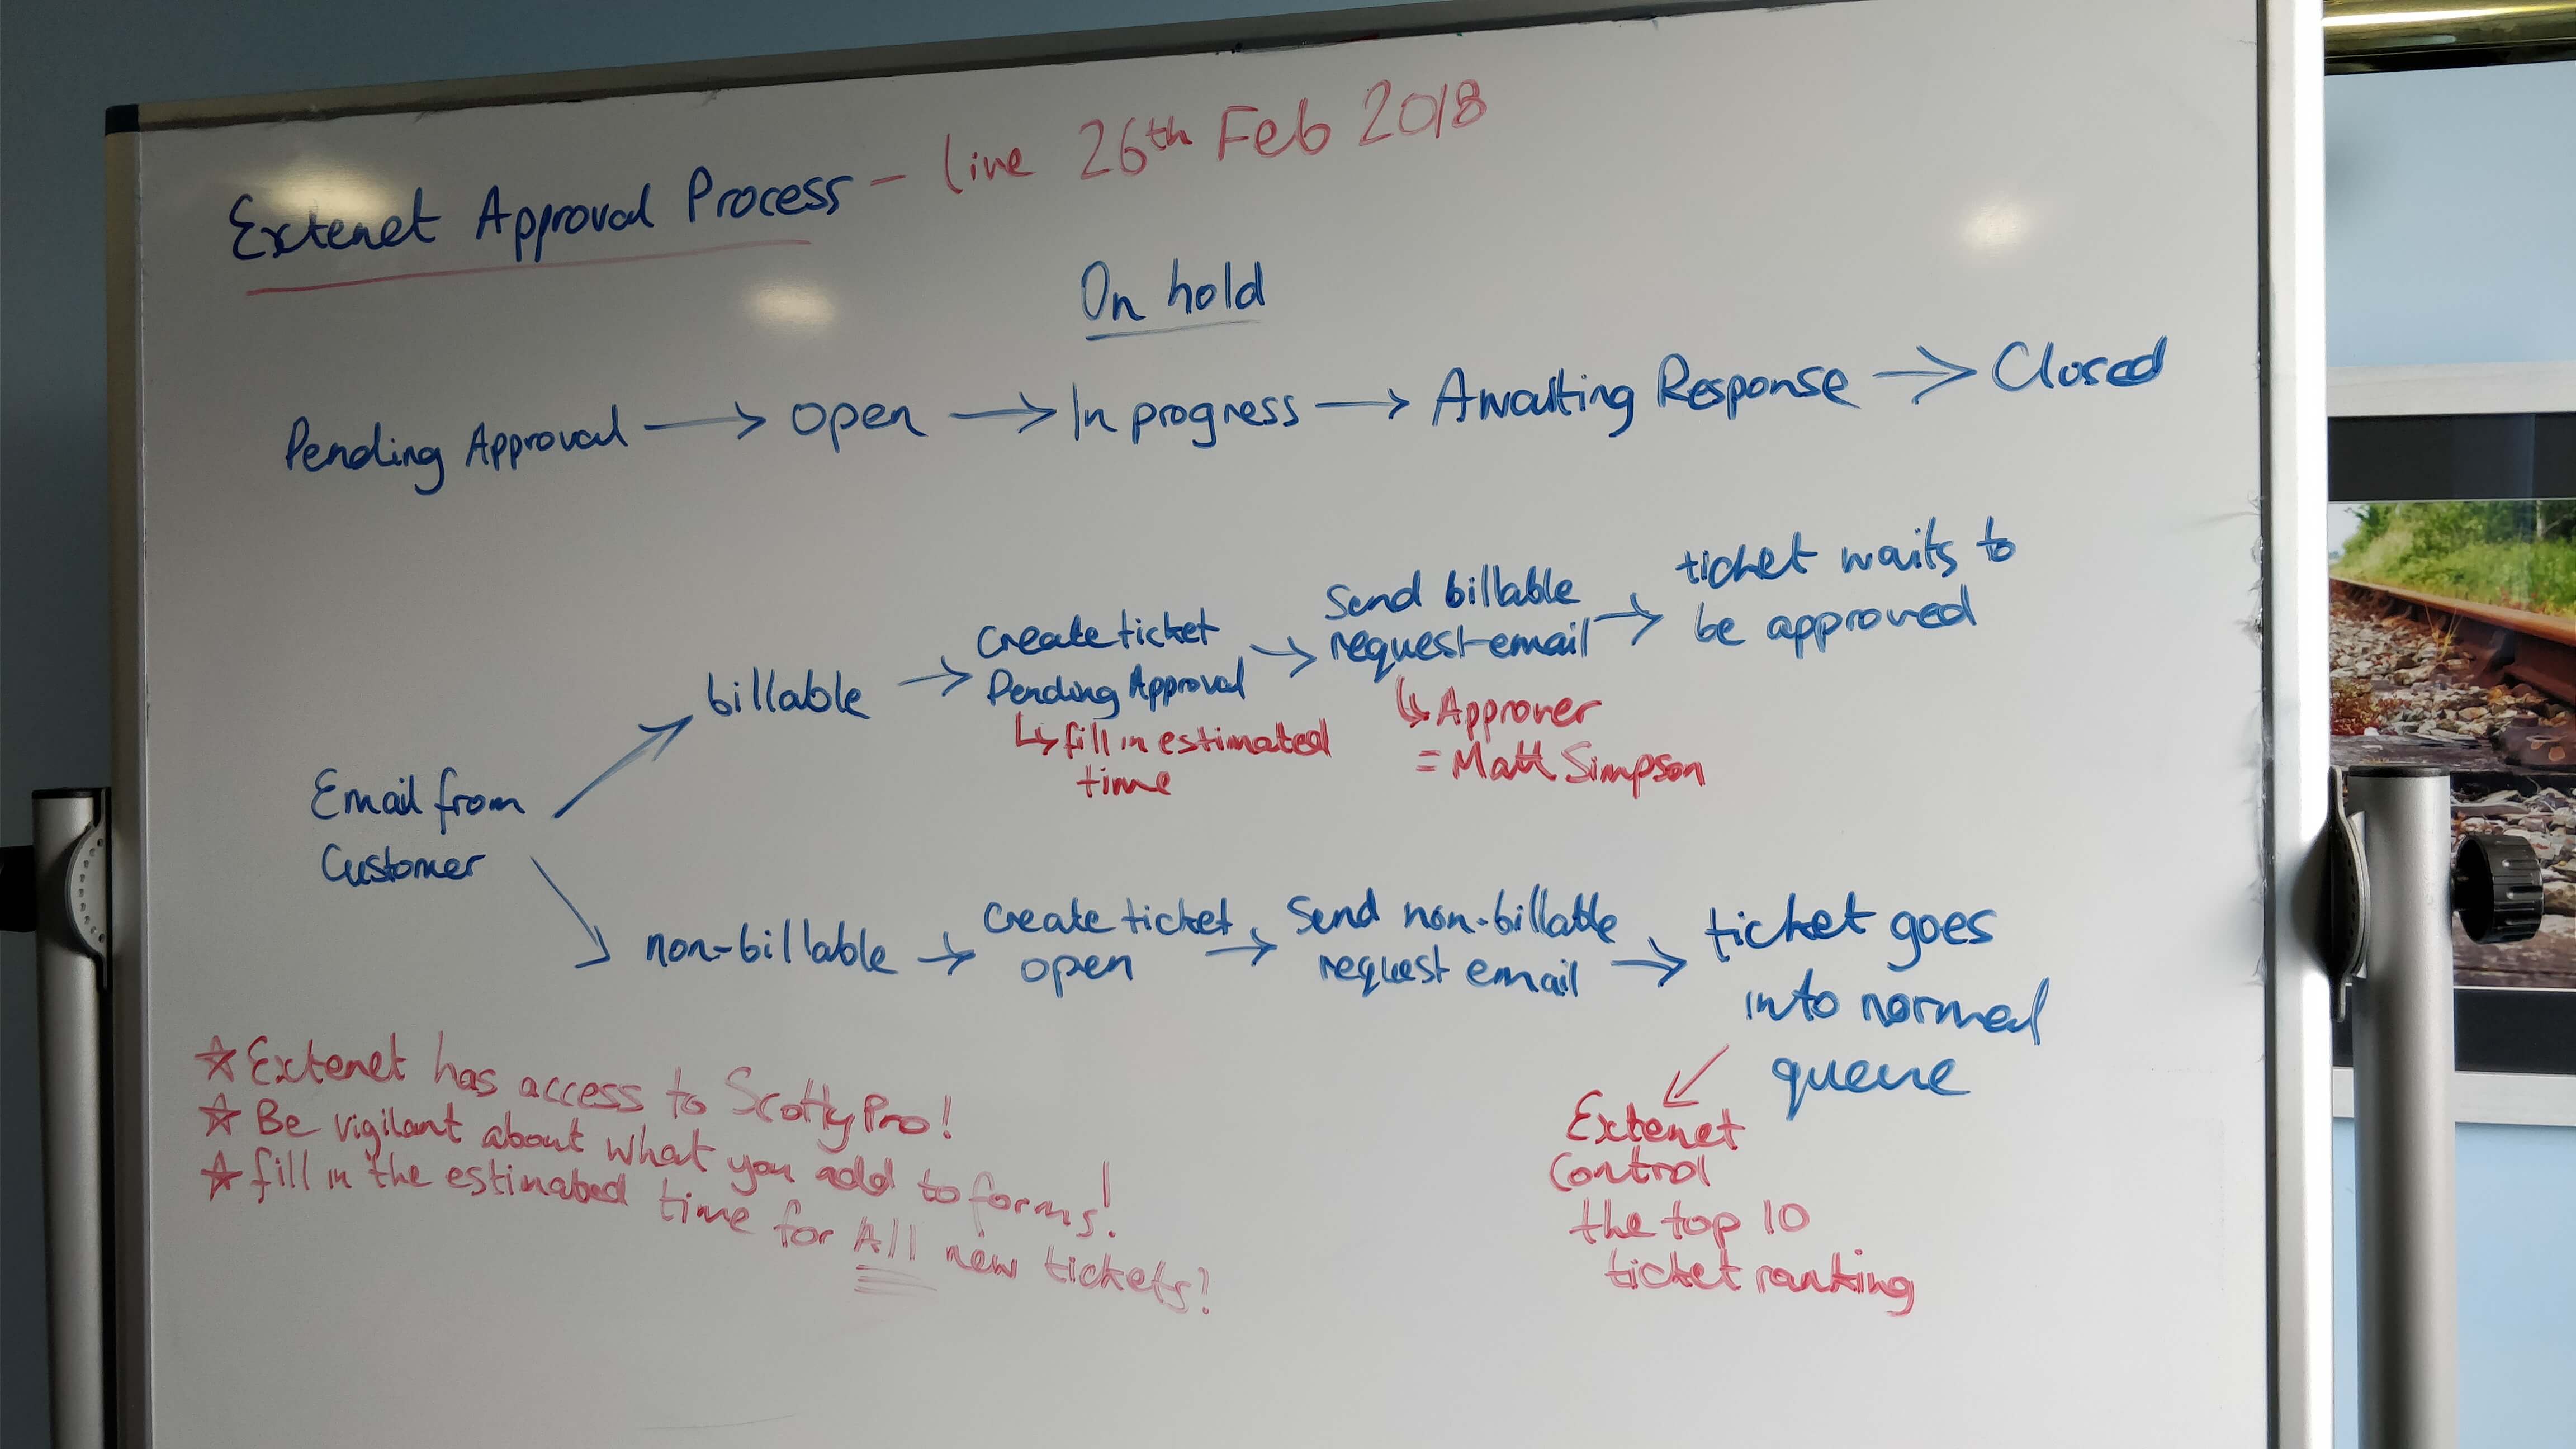 Extenet Approval Process - live 26th Feb 2018
On hold
Pending Approval → Open → In progress → Awaiting Response → Closed
Email from
Customer
billable → Create ticket
Pending Approval
↳ fill in estimated
time
→ Send billable
request email
↳ Approver
= Matt Simpson
→ ticket waits to
be approved
non-billable → Create ticket
open
→ Send non-billable
request email
→ ticket goes
into normal
queue
Extenet
Control
the top 10
ticket ranking
☆ Extenet has access to ScottyPro!
☆ Be vigilant about what you add to forms!
☆ fill in the estimated time for All new tickets!